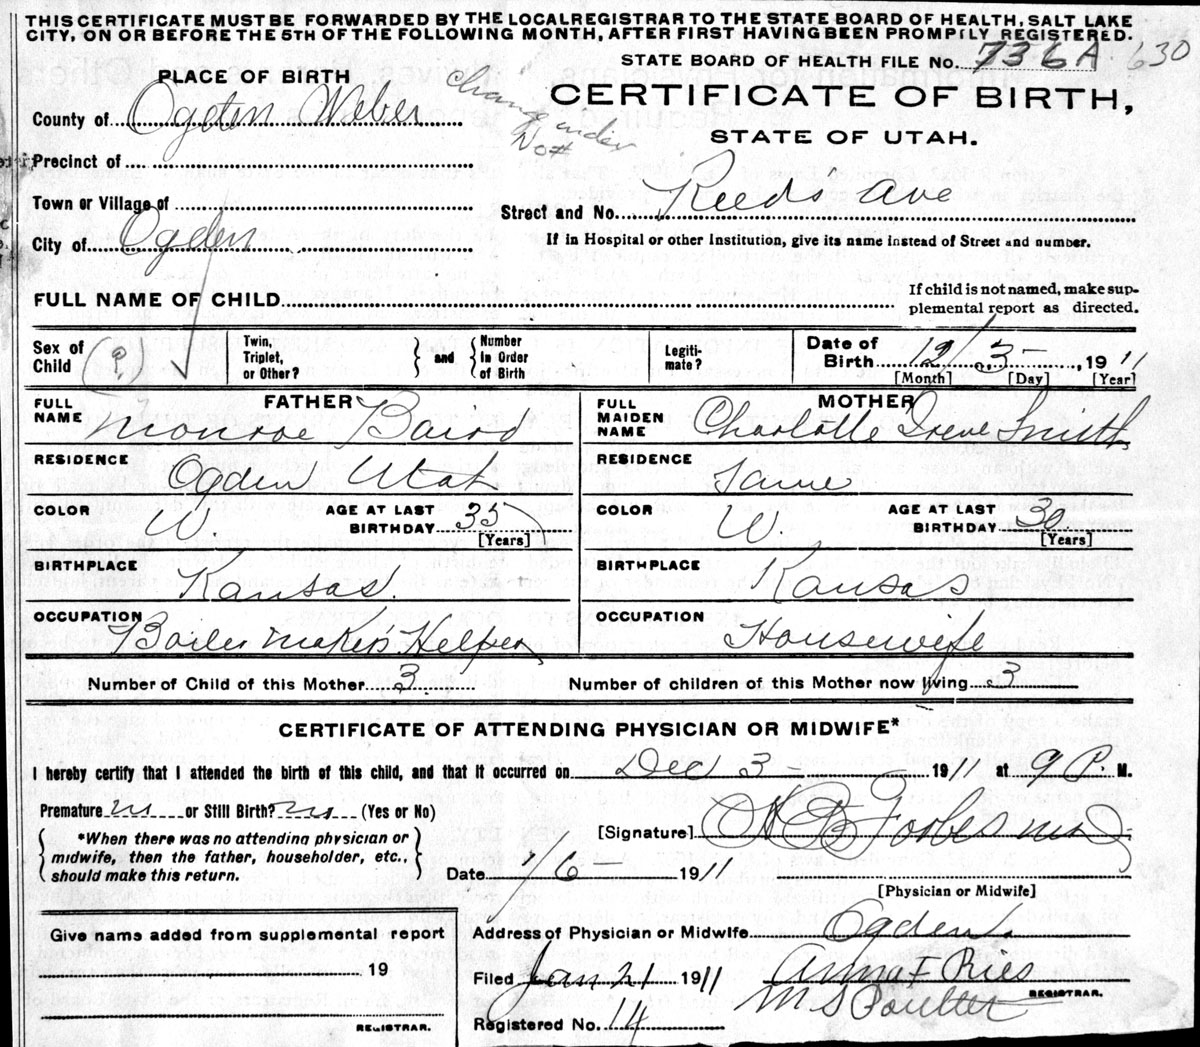 THIS CERTIFICATE MUST BE FORWARDED BY THE LOCALREGISTRAR TO THE STATE BOARD OF HEALTH, SALT LAKE
CITY, ON OR BEFORE THE 5TH OF THE FOLLOWING MONTH, AFTER FIRST HAVING BEEN PROMPLY REGISTERED.
STATE BOARD OF HEALTH FILE No. 736A 630
PLACE OF BIRTH
Change under
No#
CERTIFICATE OF BIRTH,
STATE OF UTAH.
County of Ogden Weber
Precinct of
Town or Village of
Street and No. Reeds Ave
City of Ogden
If in Hospital or other Institution, give its name instead of Street and number.
FULL NAME OF CHILD
If child is not named, make sup-
plemental report as directed.
Sex of Child (?)
Twin, Triplet, or Other?
and
Number In Order of Birth
Legiti- mate?
Date of Birth 12/3 1911
[Month] [Day] [Year]
FATHER
FULL NAME Monroe Baird
MOTHER
FULL MAIDEN NAME Charlotte Irene Smith
RESIDENCE Ogden Utah
RESIDENCE Same
COLOR W AGE AT LAST BIRTHDAY 35 [Years]
COLOR W. AGE AT LAST BIRTHDAY 30 [Years]
BIRTHPLACE Kansas.
BIRTHPLACE Kansas
OCCUPATION Boiler maker's Helper
OCCUPATION Housewife
Number of Child of this Mother 3 Number of children of this Mother now living 3
CERTIFICATE OF ATTENDING PHYSICIAN OR MIDWIFE*
I hereby certify that I attended the birth of this child, and that it occurred on Dec 3 1911 at 9 P. M.
Premature no or Still Birth? no (Yes or No)
*When there was no attending physician or
midwife, then the father, householder, etc.,
should make this return.
[Signature] Forbes md
Date /6 1911
[Physician or Midwife]
Give name added from supplemental report
19
REGISTRAR.
Address of Physician or Midwife Ogden.
Filed Jan 21 1911 Anna F Ries
M S Poulter REGISTRAR.
Registered No. 14